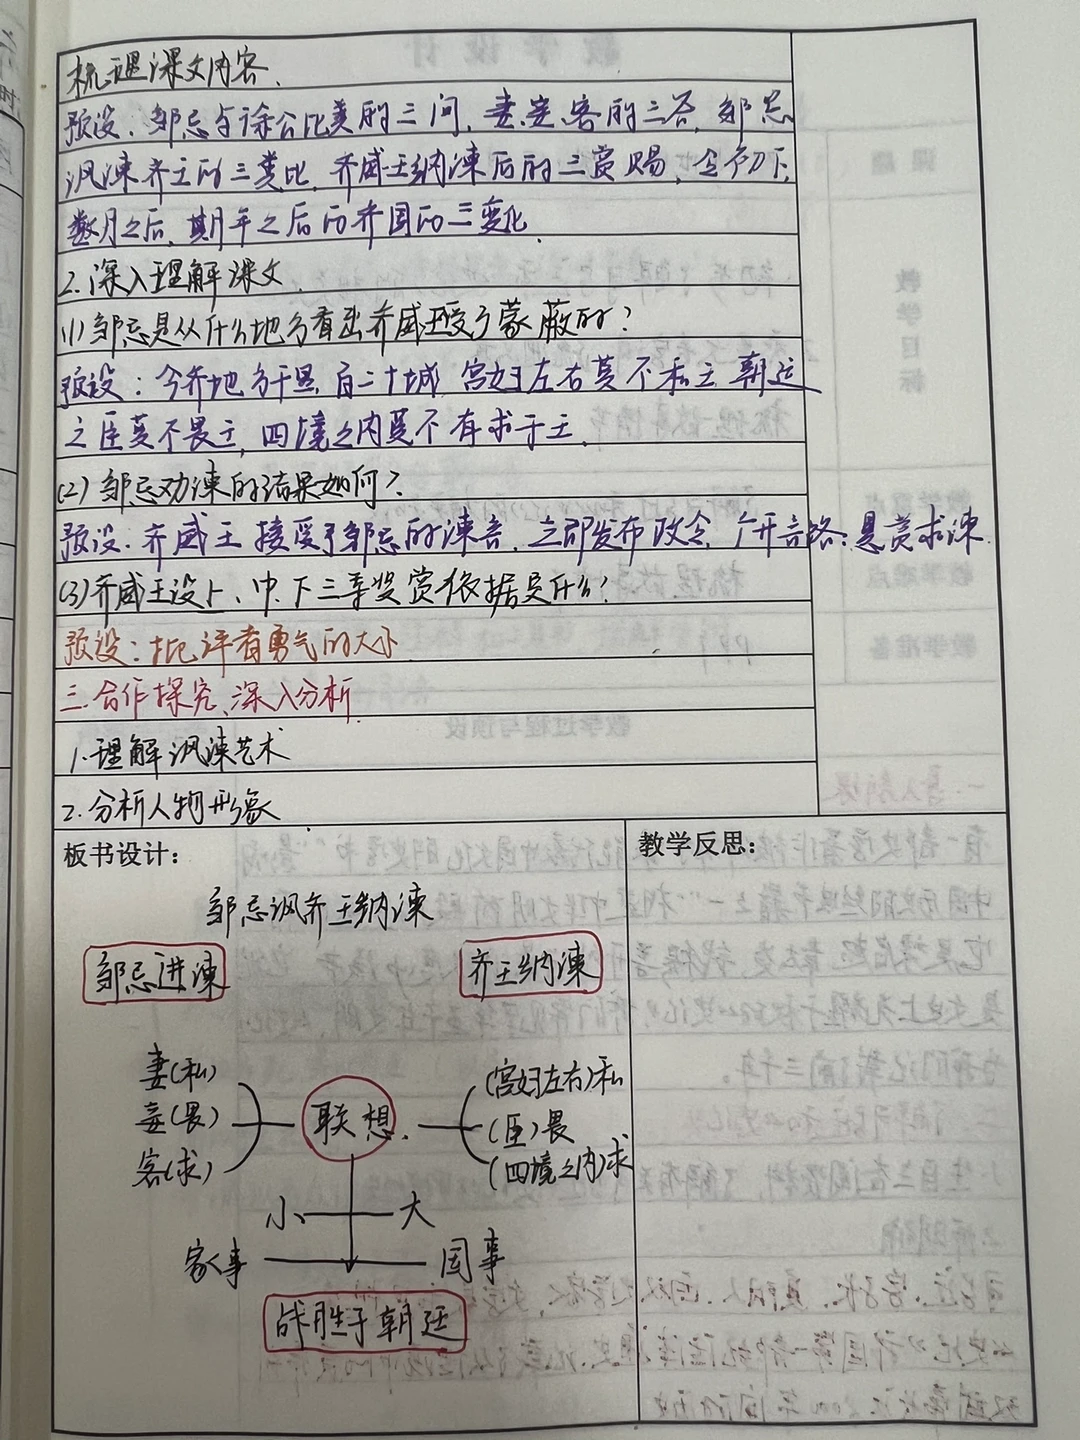 梳理课文内容.
预设:邹忌与徐公比美的三问,妻妾客的三答,邹忌
讽谏齐王的三类比,齐威王纳谏后的三赏赐,令初下,
数月之后,期年之后的齐国的三变化.
2.深入理解课文.
(1)邹忌是从什么地方看出齐威王受了蒙蔽的?
预设:今齐地方千里,百二十城,宫妇左右莫不私王,朝廷
之臣莫不畏王,四境之内莫不有求于王.
(2)邹忌劝谏的结果如何?
预设:齐威王接受了邹忌的谏言,立即发布政令,广开言路,悬赏求谏.
(3)齐威王设上、中、下三等奖赏依据是什么?
预设:批评者勇气的大小.
三.合作探究、深入分析.
1.理解讽谏艺术
2.分析人物形象
板书设计:
教学反思:
邹忌讽齐王纳谏
邹忌进谏
齐王纳谏
妻(私)
妾(畏)
客(求)
联想.
(宫妇左右)私
(臣)畏
(四境之内)求
小
大
家事
国事
战胜于朝廷